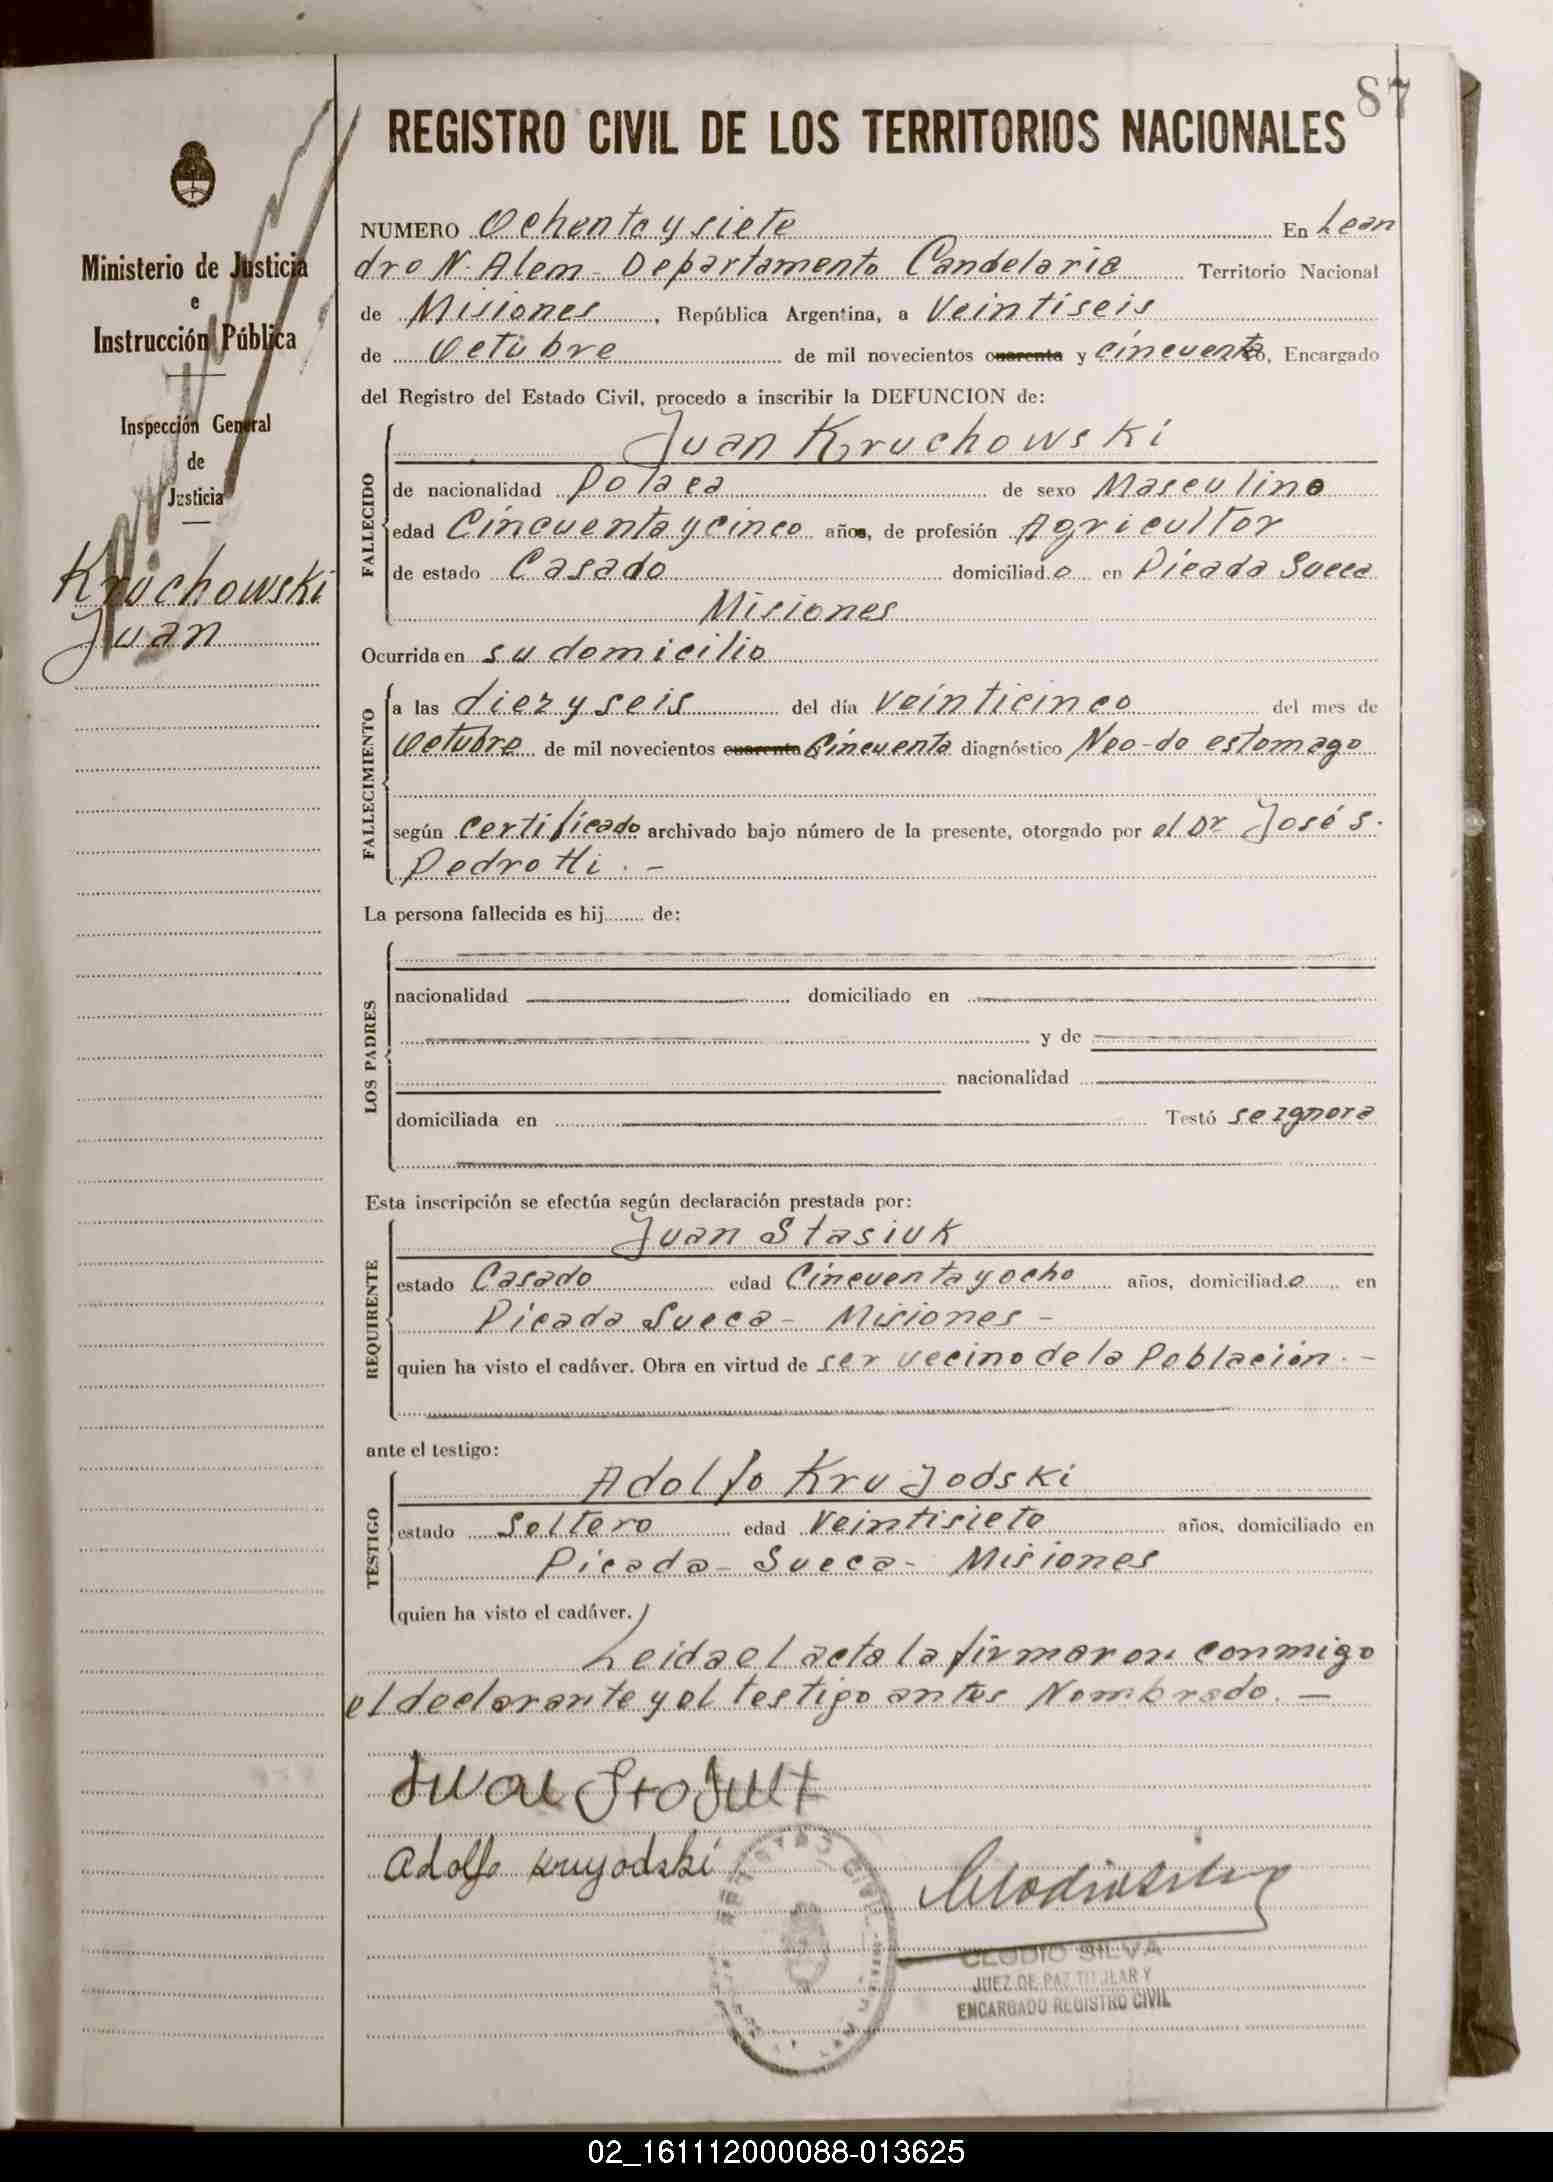 87
REGISTRO CIVIL DE LOS TERRITORIOS NACIONALES
Ministerio de Justicia
e
Instrucción Pública
Inspección General
de
Justicia
Kruchowski
Juan
NUMERO Ochenta y siete En Lean
dro N. Alem - Departamento Candelaria Territorio Nacional
de Misiones, República Argentina, a Veintiseis
de Octubre de mil novecientos cuarenta y cincuenta, Encargado
del Registro del Estado Civil, procedo a inscribir la DEFUNCION de:
FALLECIDO
Juan Kruchowski
de nacionalidad Polaca de sexo Masculino
edad Cincuenta y cinco años, de profesión Agricultor
de estado Casado domiciliado en Picada Sueca
Misiones
Ocurrida en su domicilio
FALLECIMIENTO
a las diez y seis del día veinticinco del mes de
Octubre de mil novecientos cuarenta Cincuenta diagnóstico Neo-de estomago
según certificado archivado bajo número de la presente, otorgado por el Dr José S.
Pedrotti. -
La persona fallecida es hij........ de:
LOS PADRES
nacionalidad domiciliado en
y de
nacionalidad
domiciliada en Testó se ignora
Esta inscripción se efectúa según declaración prestada por:
REQUIRENTE
Juan Stasiuk
estado Casado edad Cincuenta y ocho años, domiciliado en
Picada Sueca - Misiones -
quien ha visto el cadáver. Obra en virtud de ser vecino de la Población. -
ante el testigo:
TESTIGO
Adolfo Krujodski
estado Soltero edad Veintisiete años, domiciliado en
Picada - Sueca - Misiones
quien ha visto el cadáver.
Leida el acta la firmaron conmigo
el declarante y el testigo antes Nombrado. -
Juan
Adolfo Kruyodski
REGISTRO CIVIL
CLODIO SILVA
JUEZ DE PAZ TITULAR Y
ENCARGADO REGISTRO CIVIL
02_161112000088-013625